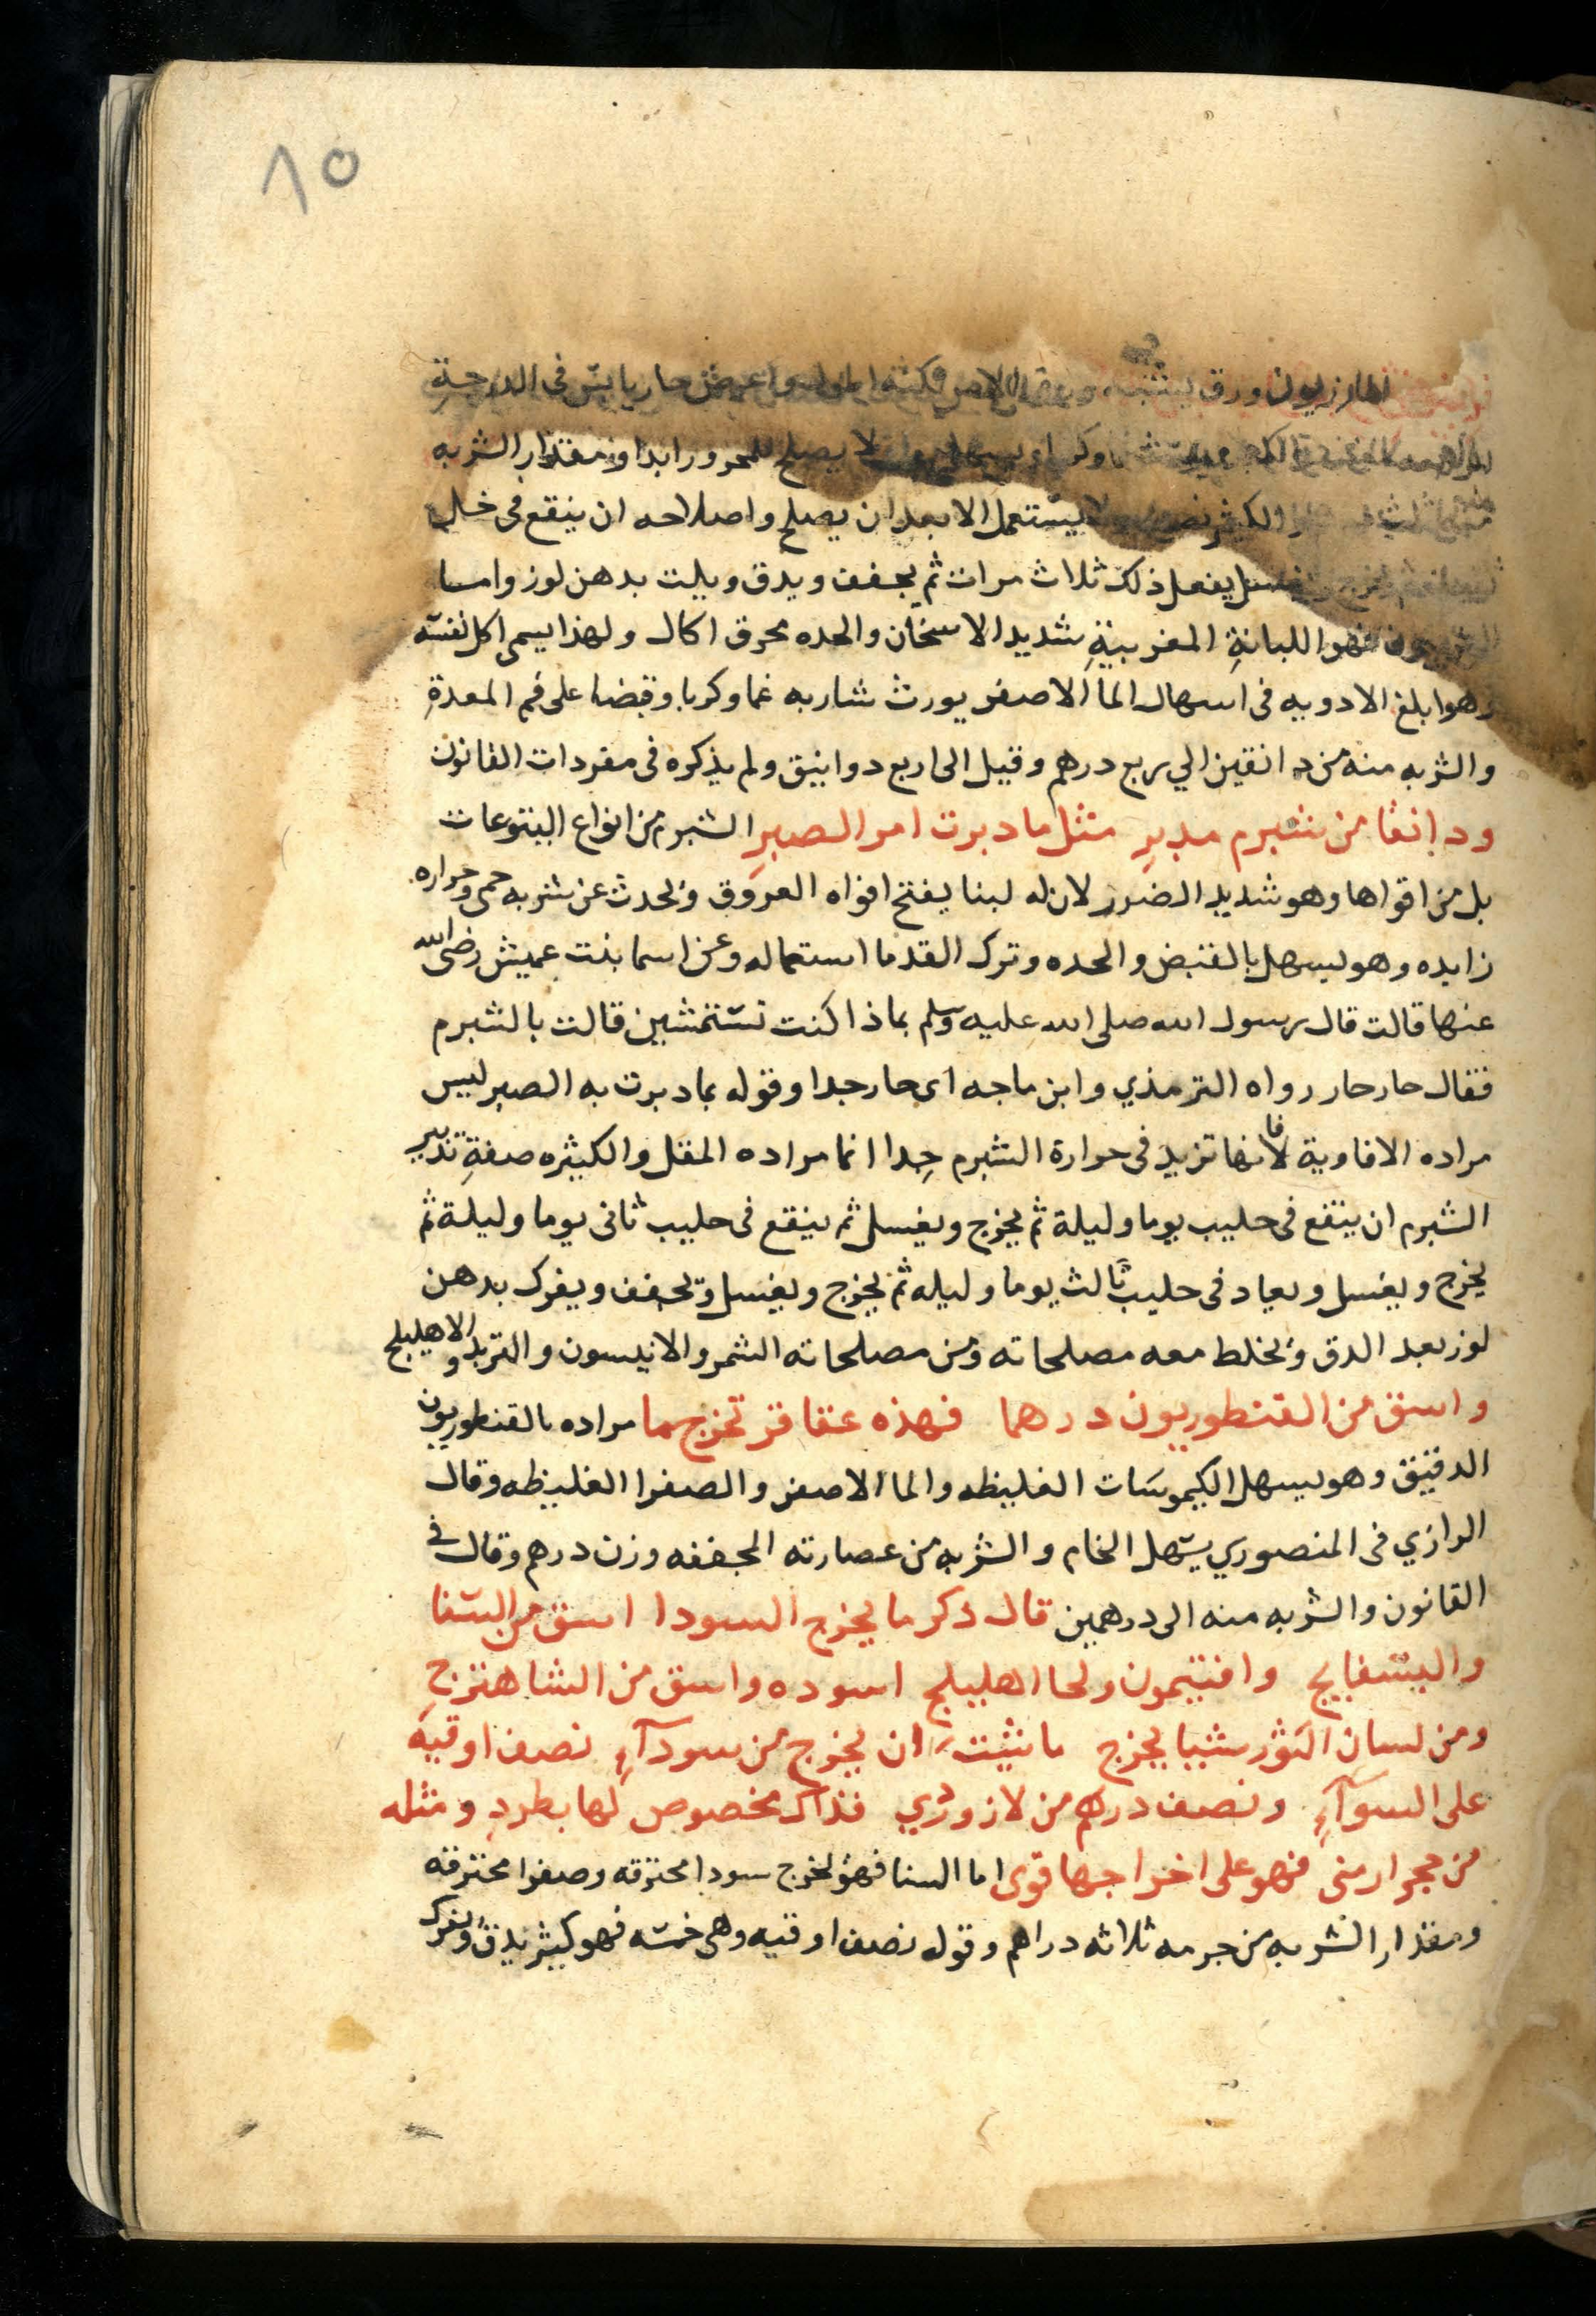 ٨٥
المازريون ورق يشبه ورق حار يابس فى الدرجة
لا يصلح للمحرور ابدا ومقدار الشربه
الكثير ولا يستعمل الا بعد ان يصلح واصلاحه ان ينقع فى خل
يفعل ذلك ثلاث مرات ثم يجفف ويدق ويلت بدهن لوز واما
فهو اللبانة المغربية شديد الاسخان والحده محرق اكال ولهذا يسمى اكل نفسه
وهو ابلغ الادويه فى اسهال الما الاصفر يورث شاربه غما وكربا وقبضا على فم المعدة
والشربه منه من دانقين الي ربع درهم وقيل الى اربع دوانيق ولم يذكره فى مفردات القانون
ودانقا من شبرم مدبر مثل ما دبرت امر الصبر الشبرم من انواع اليتوعات
بل من اقواها وهو شديد الضرر لان له لبنا يفتح افواه العروق ويحدث عن شربه حمى وحراره
زايده وهو يسهل بالقبض والحده وترك القدما استعماله وعن اسما بنت عميش رضى الله
عنها قالت قال رسول الله صلى الله عليه وسلم بماذا كنت تستمشين قالت بالشبرم
فقال حار حار رواه الترمذي وابن ماجه اى حار جدا وقوله بما دبرت به الصبر ليس
مراده الافاوية فانها تزيد فى حرارة الشبرم جدا انما مراده المقل والكثيره صفة تدبير
الشبرم ان ينقع فى حليب يوما وليلة ثم يخرج ويغسل ثم ينقع فى حليب ثانى يوما وليلة ثم
يخرج ويغسل ويعاد فى حليب ثالث يوما وليله ثم يخرج ويغسل ويجفف ويفرك بدهن
لوز بعد الدق ويخلط معه مصلحاته ومن مصلحاته الشمر والانيسون والتربد والاهليلج
واسق من القنطوريون درهما فهذه عقاقر تخرج ما مراده بالقنطوريون
الدقيق وهو يسهل الكيموسات الغليظه والما الاصفر والصفرا الغليظه وقال
الرازي فى المنصوري يسهل الخام والشربه من عصارته المجففه وزن درهم وقال فى
القانون والشربه منه الى درهمين قال ذكر ما يخرج السودا اسق من السنا
والبسفايج وافتيمون ولحا اهليلج اسوده واسق من الشاهترج
ومن لسان الثور شيبا يخرج ما شيت ان يخرج من سودآء نصف اوقيه
على السوآء ونصف درهم من لازوردي فذاك مخصوص لها بطرد ومثله
من حجر ارمنى فهو على اخراجها قوى اما السنا فهو يخرج سودا محترقه وصفرا محترقه
ومقدار الشربه من جرمه ثلاثه دراهم وقوله نصف اوقيه وهى خمسه فهو كثير يدق ويفرك